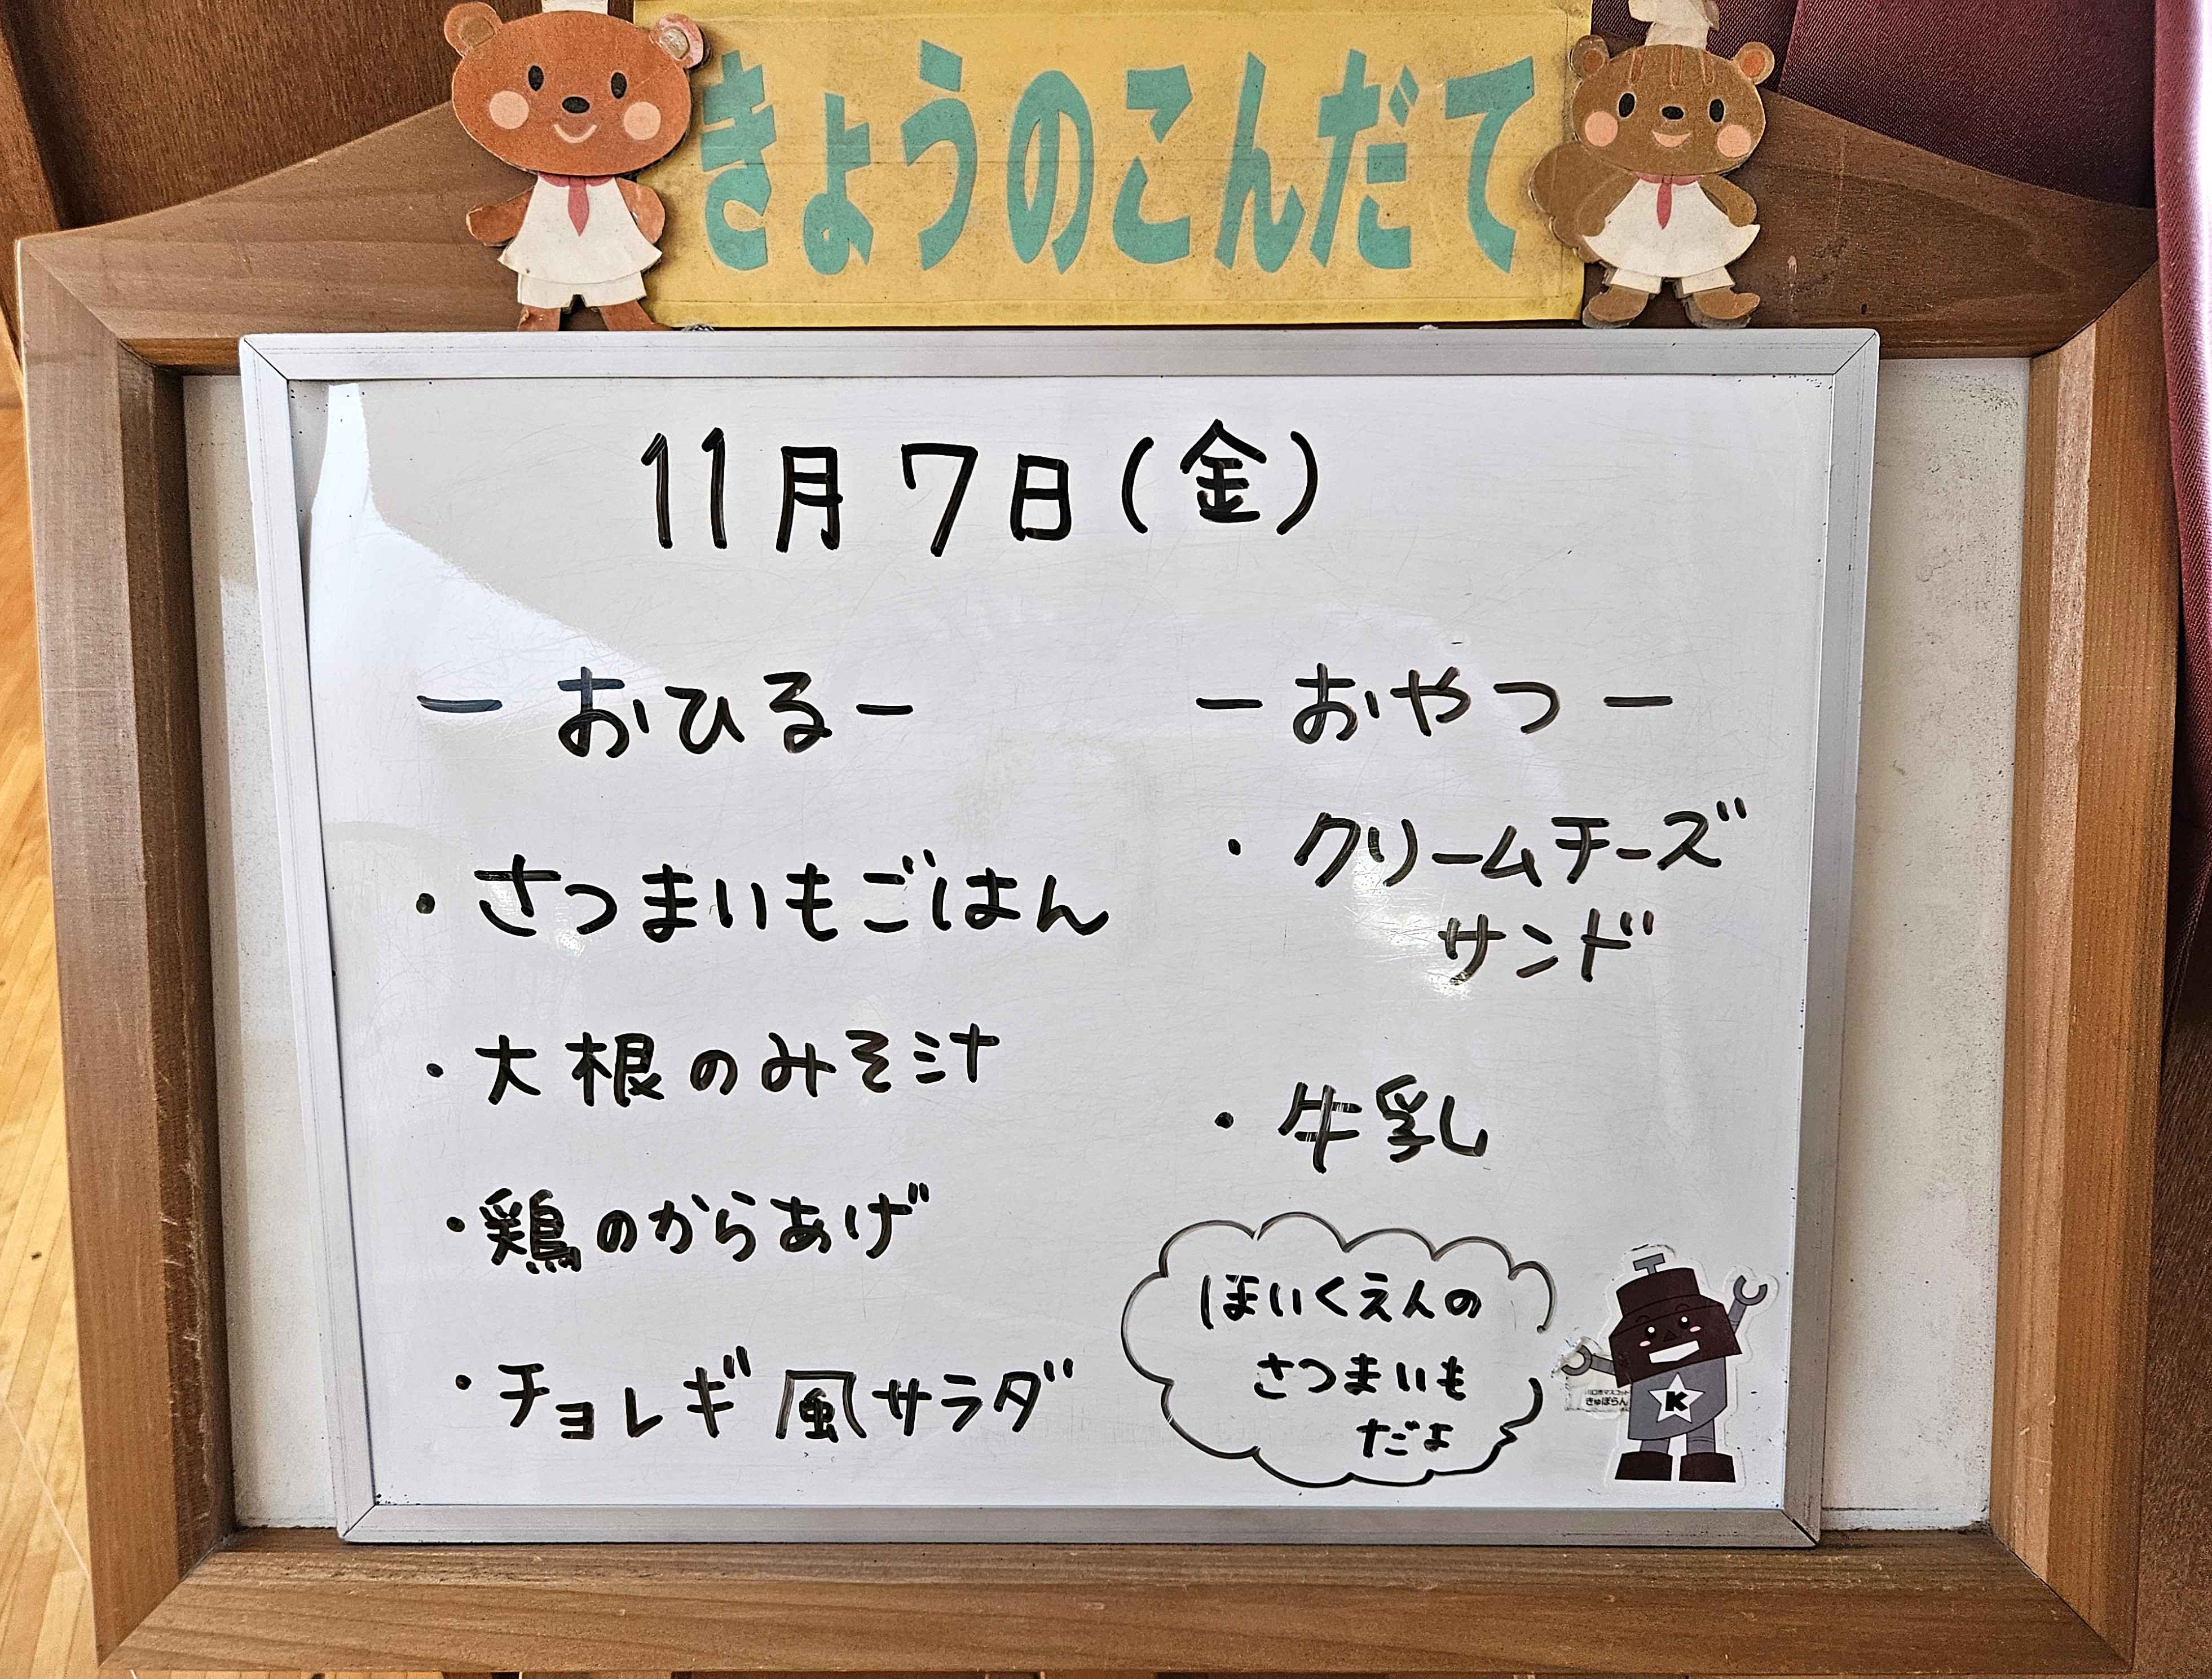 きょうのこんだて
11月7日(金)
ーおひるー
・さつまいもごはん
・大根のみそ汁
・鶏のからあげ
・チョレギ風サラダ
ーおやつー
・クリームチーズ
サンド
・牛乳
ほいくえんの
さつまいも
だよ
川口市マスコット
きゅぽらん
K